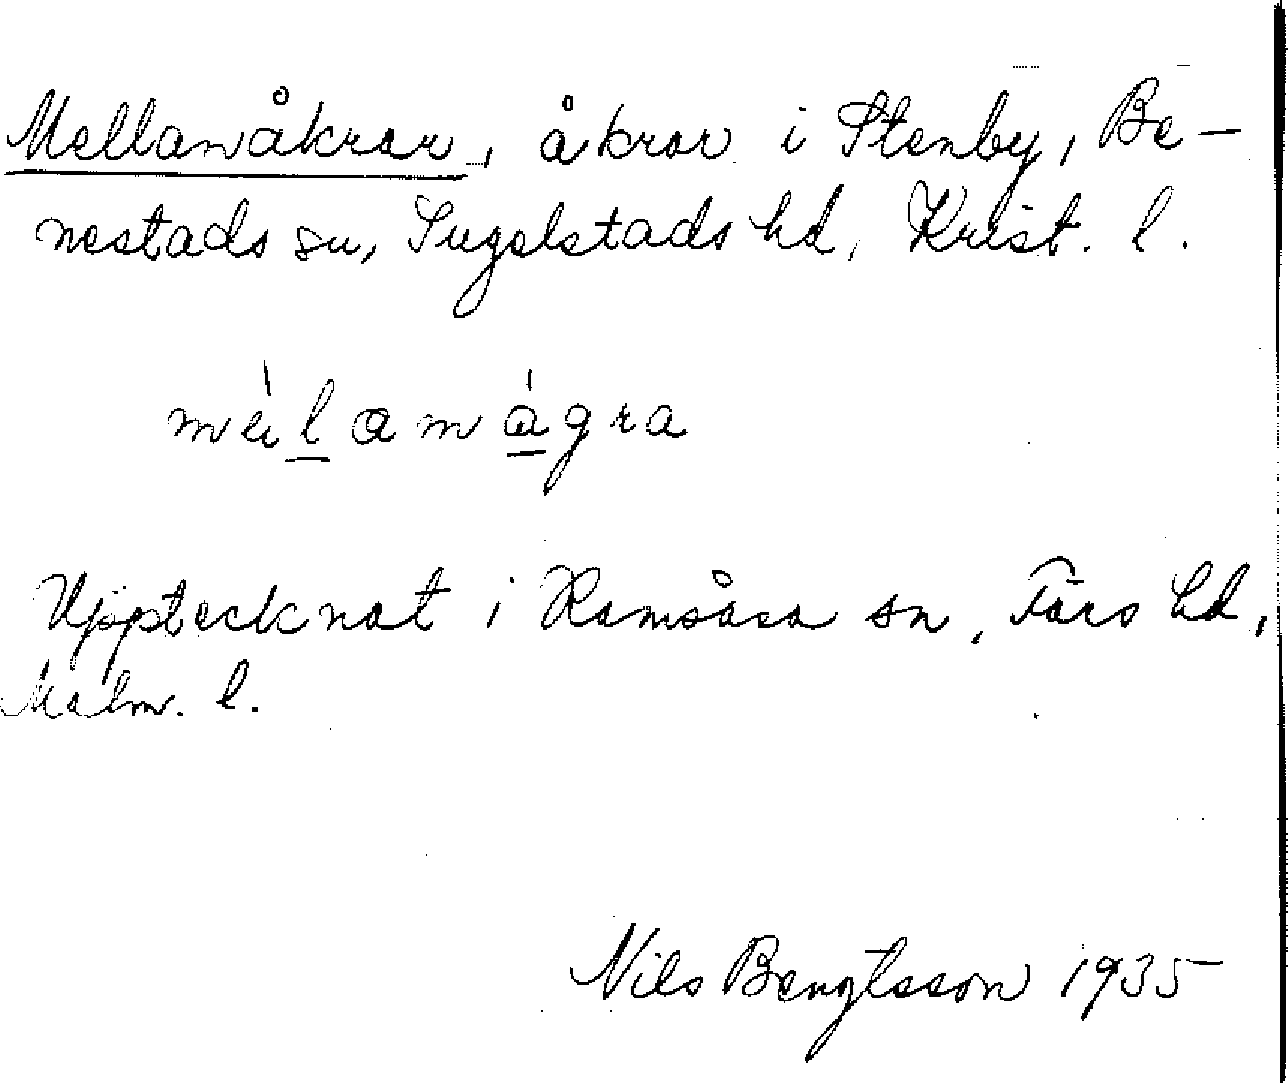 Mellanåkrar, åkrar i Stenby, Be-
nestads sn, Ingelstads hd, Krist. l.
mèi̇lamágra
Upptecknat i Ramsåsa sn, Färs hd,
Malm. l.
Nils Bengtsson 1935